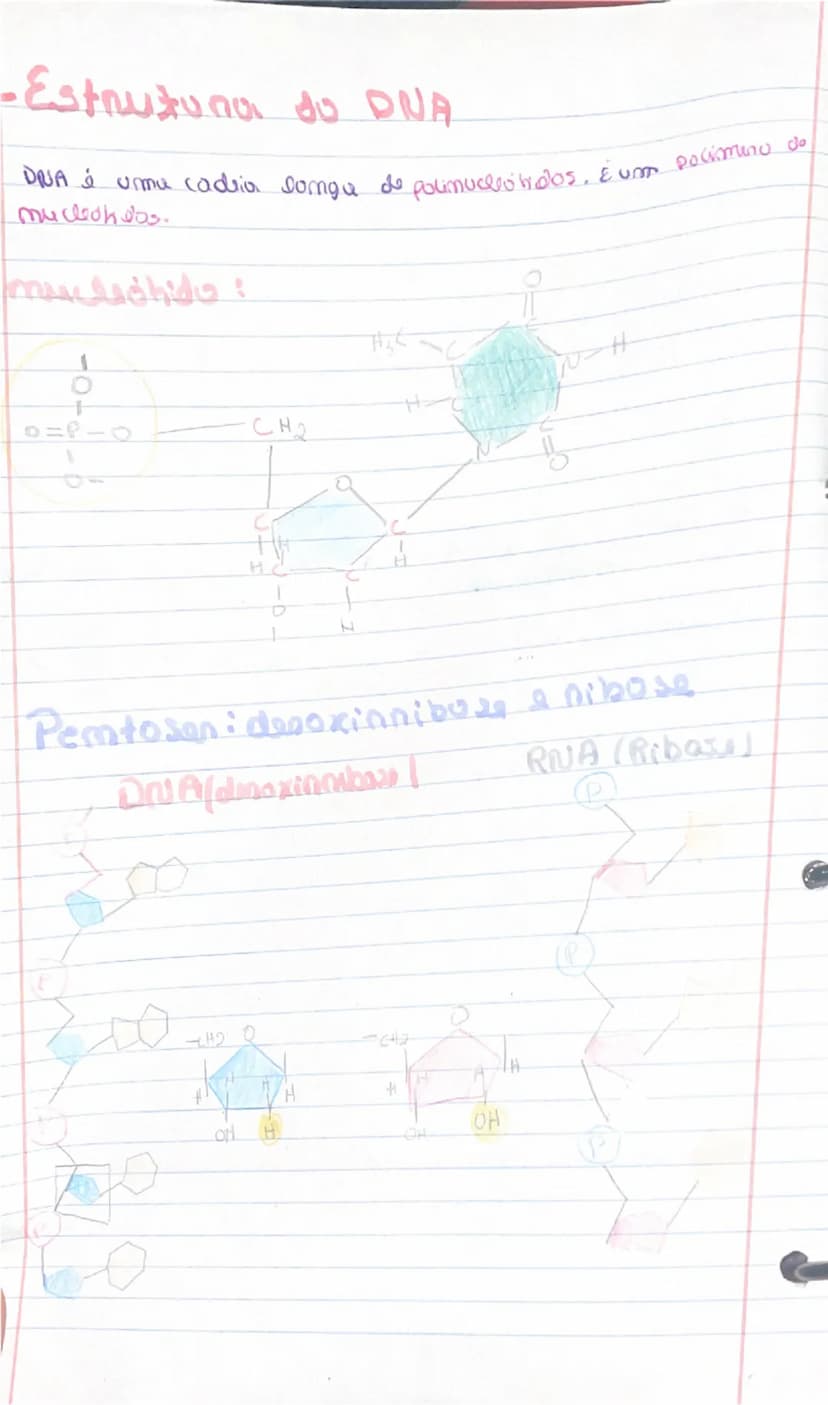 - Estrutura do DNA
DNA é uma cadeia longa de polinucleótidos. É um polímero de
nucleótidos.
nucleótido:
O
H₃C C N H
O
O=P-O
O-
CH₂
H C
N C
O
O
C C
H
H C C H
O H
Pentoses: desoxirribose e ribose
DNA (desoxirribose)
RNA (Ribose)
P
P
P
-CH2 O
H H H H
OH H
-CH2 O
H H H H
OH OH
P
P
P
P